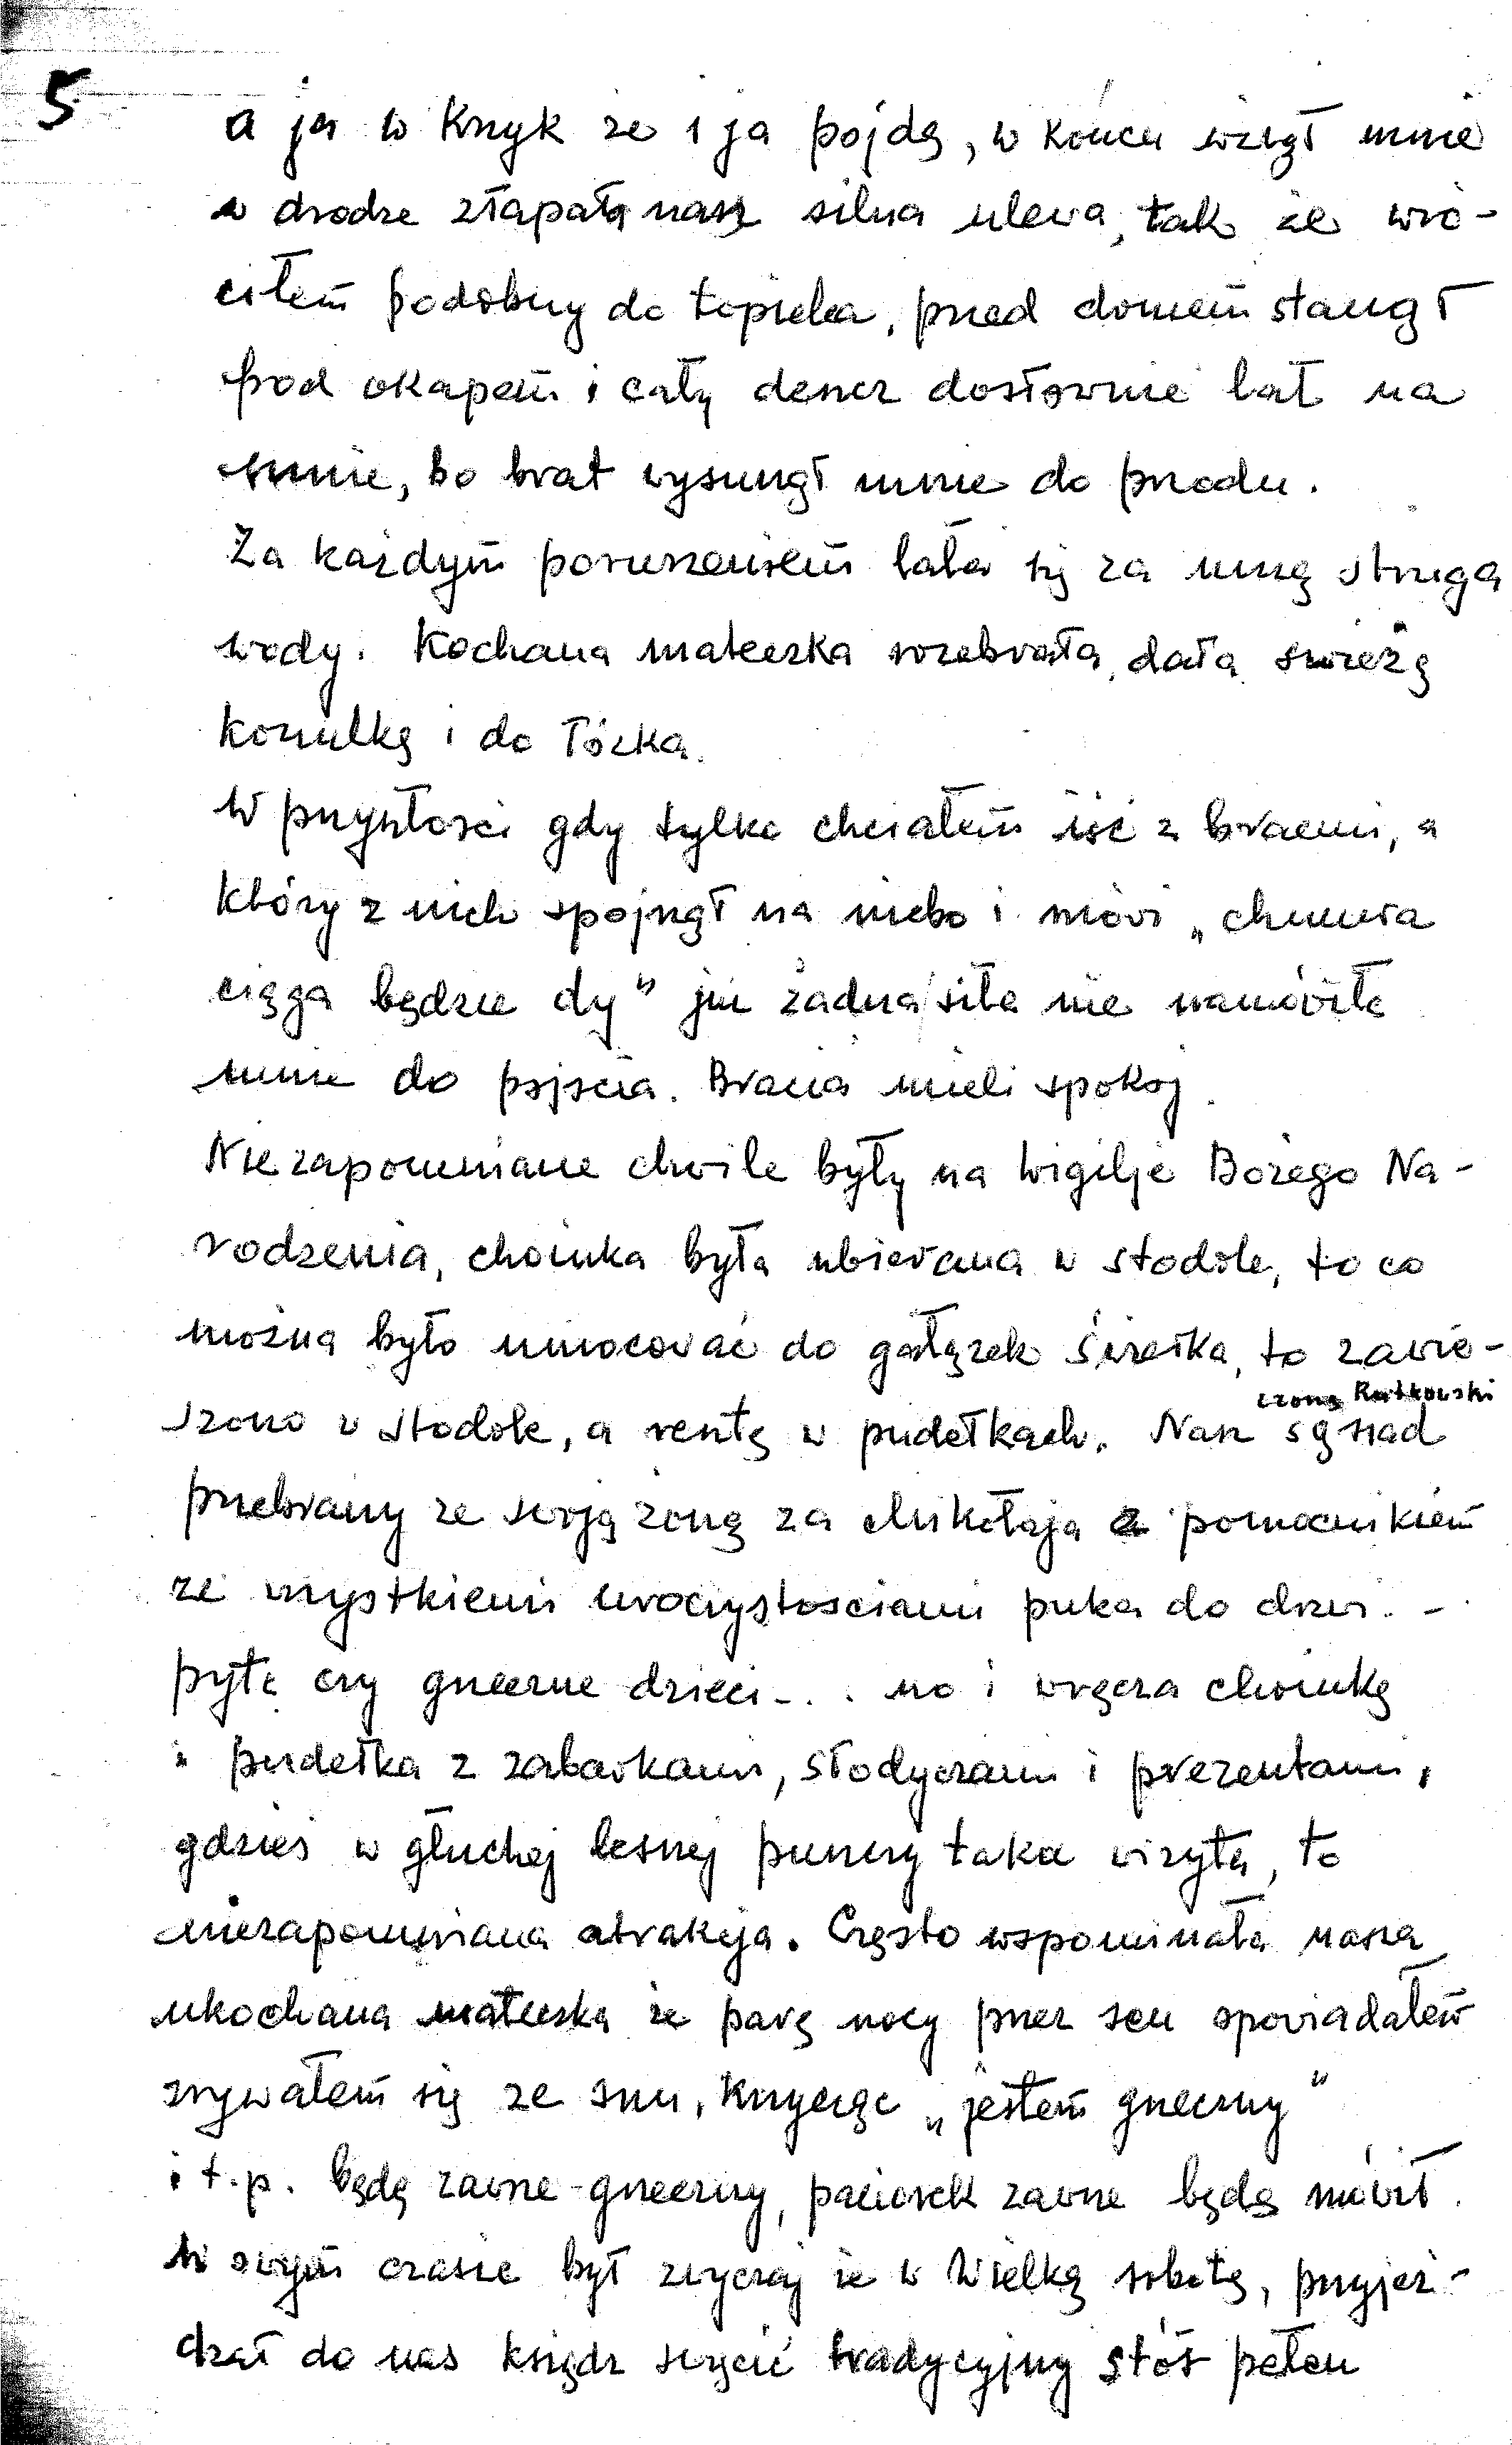 5
a ja w krzyk że i ja pojdę, w końcu wziął mnie
w drodze złapała nasz silna ulewa, tak że wró-
ciłem podobny do topielca, przed domem stanął
pod okapem i cały deszcz dosłownie lał na
mnie, bo brat wysunął mnie do przodu.
Za każdym poruszeniem lała się za mną struga
wody. Kochana mateczka rozebrała, dała świeżą
koszulkę i do łóżka.
W przyszłosci gdy tylko chciałem iść z braćmi, a
który z nich spojrzał na niebo i mówi „chmura
ciąga będzie dy" już żadna siła nie namówiła
mnie do pojscia. Bracia mieli spokoj.
Niezapomniane chwile były na Wigilje Bożego Na-
rodzenia, choinka była ubierana w stodole, to co
można było umocować do gałązek świerka, to zawie-
szono w stodole, a resztę w pudełkach. Nasz sąsiad
czoną Rutkowski
przebrany ze swoją żoną za Mikołaja z pomocnikiem
ze wszystkiemi uroczystosciami puka do drzwi. -
pyta czy grzeczne dzieci - . . no i wręcza choinkę
i pudełka z zabawkami, słodyczami i prezentami,
gdzies w głuchej lesnej puszczy taka wizyta, to
niezapomniana atrakcja. Często wspominała nasza
ukochana mateczka że parę nocy przez sen opowiadałem
zrywałem się ze snu, krzycząc „jestem grzeczny"
i t.p. będę zawsze grzeczny, paciorek zawsze będę mówił.
W owym czasie był zwyczaj że w Wielką sobotę, przyjeż-
dzał do nas ksiądz swięcić tradycyjny stół pełen